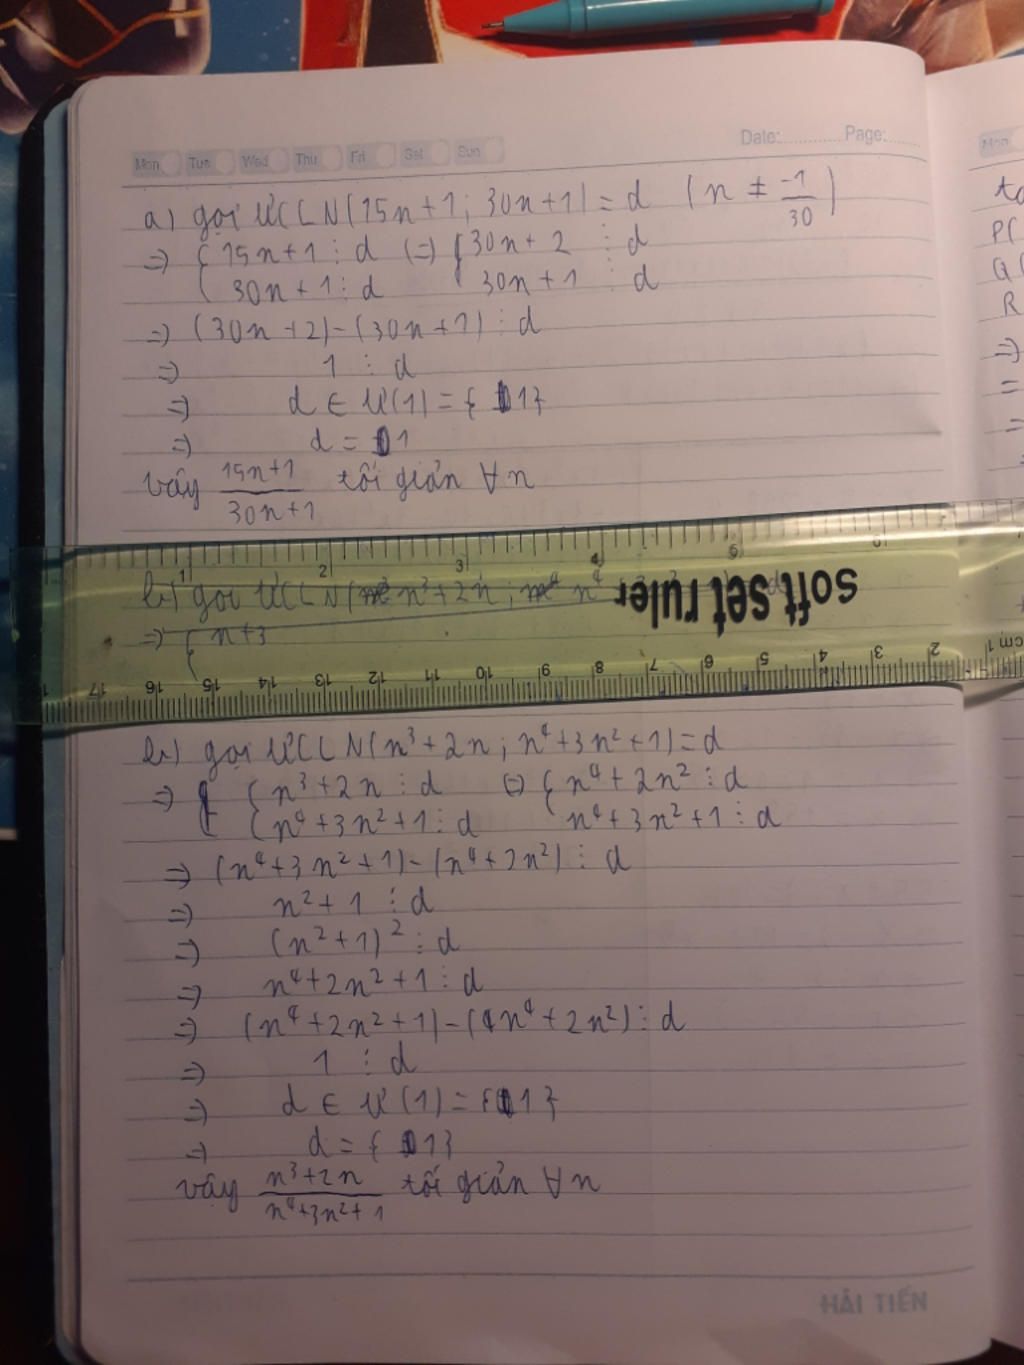 Mon Tue Wed Thu Fri Sat Sun Date:............Page:......
a) gọi ƯCLN(15n+1; 30n+1) = d (n ≠ -1/30)
=> { 15n+1 ⋮ d (=) { 30n+2 ⋮ d
30n+1 ⋮ d 30n+1 ⋮ d
=> (30n+2)-(30n+1) ⋮ d
=> 1 ⋮ d
=> d ∈ Ư(1) = { 1}
=> d = 1
vậy 15n+1/30n+1 tối giản ∀n
soft set ruler
b) gọi ƯCLN( n³+2n; n⁴
=> { n+3
b) gọi ƯCLN(n³+2n; n⁴+3n²+1)=d
=> { n³+2n ⋮ d (=) { n⁴+2n² ⋮ d
{ n⁴+3n²+1 ⋮ d n⁴+3n²+1 ⋮ d
=> (n⁴+3n²+1)-(n⁴+2n²) ⋮ d
=> n²+1 ⋮ d
=> (n²+1)² ⋮ d
=> n⁴+2n²+1 ⋮ d
=> (n⁴+2n²+1)-(n⁴+2n²) ⋮ d
=> 1 ⋮ d
=> d ∈ Ư(1) = { 1}
=> d = { 1}
vậy n³+2n/n⁴+3n²+1 tối giản ∀n
HẢI TIẾN
Mon
P(
Q(
R
=>
=